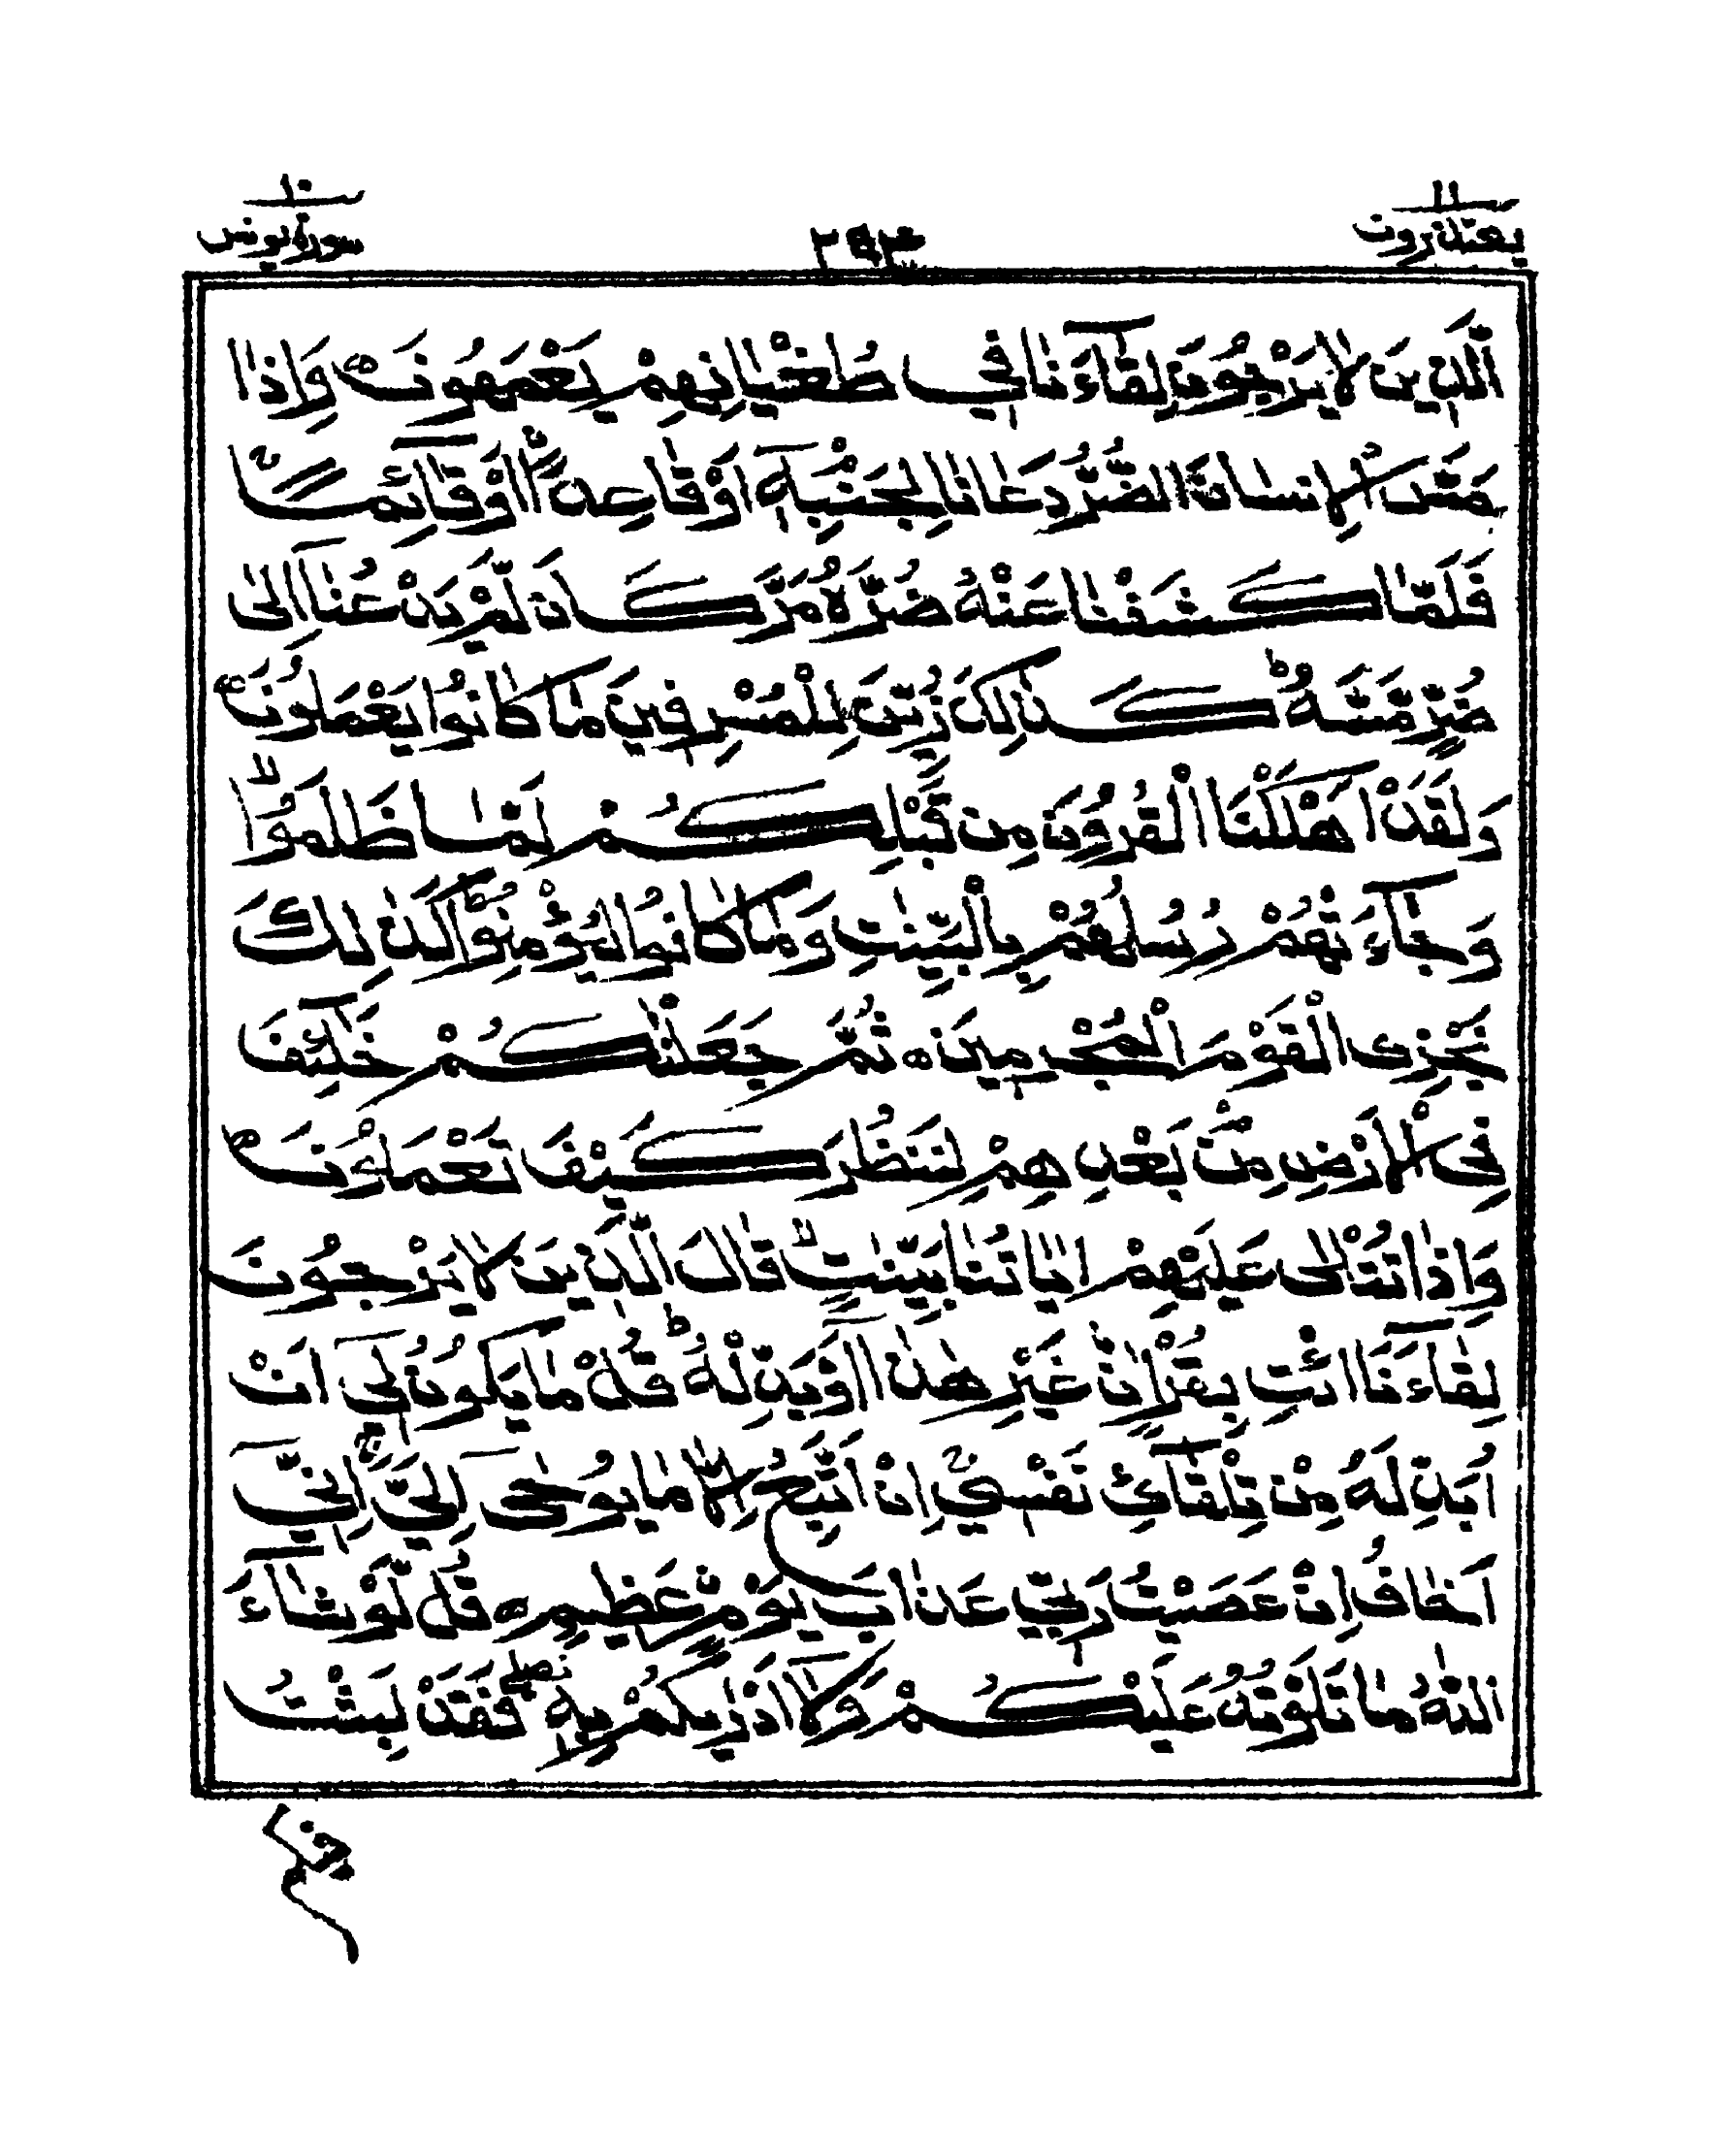 يعتذرون ١١
٢٩٣
سورة يونس ١٠
الَّذِيْنَ لَا يَرْجُوْنَ لِقَآءَنَا فِيْ طُغْيَانِهِمْ يَعْمَهُوْنَ ۝ وَاِذَا
مَسَّ الْاِنْسَانَ الضُّرُّ دَعَانَا لِجَنْۢبِهٖٓ اَوْ قَاعِدًا اَوْ قَآئِمًا ۚ
فَلَمَّا كَشَفْنَا عَنْهُ ضُرَّهٗ مَرَّ كَاَنْ لَّمْ يَدْعُنَآ اِلٰى
ضُرٍّ مَّسَّهٗ ؕ كَذٰلِكَ زُيِّنَ لِلْمُسْرِفِيْنَ مَا كَانُوْا يَعْمَلُوْنَ ۝
وَلَقَدْ اَهْلَكْنَا الْقُرُوْنَ مِنْ قَبْلِكُمْ لَمَّا ظَلَمُوْا ۙ
وَجَآءَتْهُمْ رُسُلُهُمْ بِالْبَيِّنٰتِ وَمَا كَانُوْا لِيُؤْمِنُوْا ؕ كَذٰلِكَ
نَجْزِى الْقَوْمَ الْمُجْرِمِيْنَ ۝ ثُمَّ جَعَلْنٰكُمْ خَلٰٓئِفَ
فِى الْاَرْضِ مِنْۢ بَعْدِهِمْ لِنَنْظُرَ كَيْفَ تَعْمَلُوْنَ ۝
وَاِذَا تُتْلٰى عَلَيْهِمْ اٰيَاتُنَا بَيِّنٰتٍ ۙ قَالَ الَّذِيْنَ لَا يَرْجُوْنَ
لِقَآءَنَا ائْتِ بِقُرْاٰنٍ غَيْرِ هٰذَآ اَوْ بَدِّلْهُ ؕ قُلْ مَا يَكُوْنُ لِيْٓ اَنْ
اُبَدِّلَهٗ مِنْ تِلْقَآئِ نَفْسِيْ ۚ اِنْ اَتَّبِعُ اِلَّا مَا يُوْحٰٓى اِلَيَّ ۚ اِنِّيْٓ
اَخَافُ اِنْ عَصَيْتُ رَبِّيْ عَذَابَ يَوْمٍ عَظِيْمٍ ۝ قُلْ لَّوْ شَآءَ
اللّٰهُ مَا تَلَوْتُهٗ عَلَيْكُمْ وَلَآ اَدْرٰىكُمْ بِهٖ ۖ فَقَدْ لَبِثْتُ